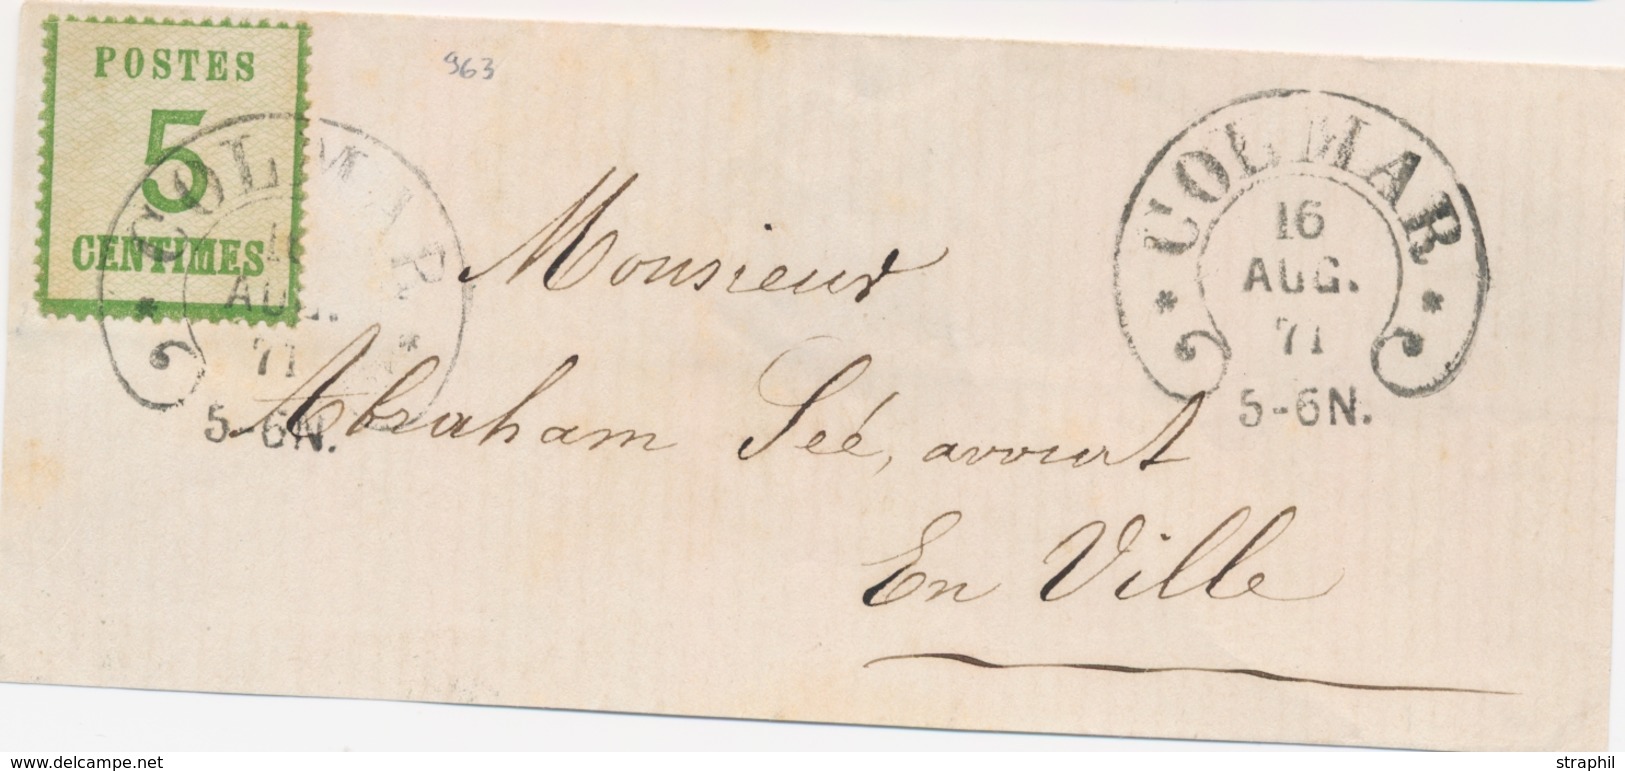 POSTES
5
CENTIMES
963
COLMAR
16
AUG.
71
5-6N.
COLMAR
16
AUG.
71
5-6N.
Monsieur
Abraham Séé, avocat
En Ville
delcampe.net
straphil